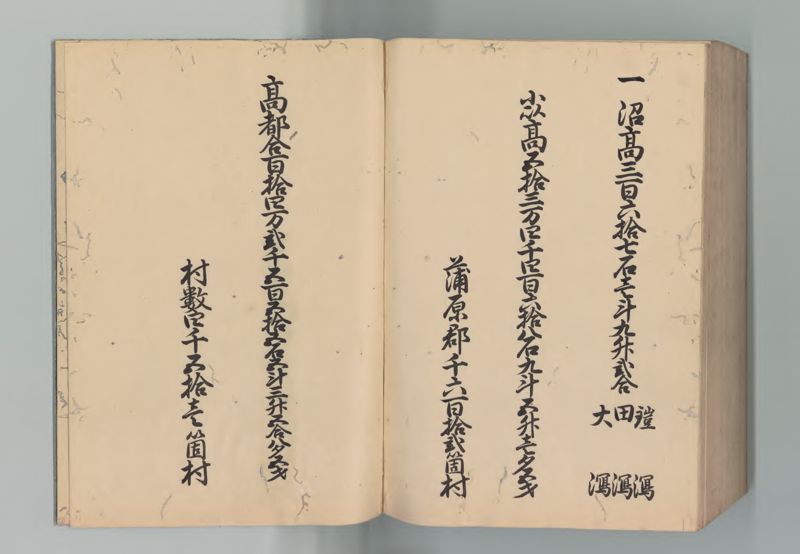 一 沼高三百六拾七石壱斗九升弐合
鎧潟
田潟
大潟
小以高五拾三万四千四百六拾八石九斗五升
蒲原郡千六百拾弐箇村
高都合百拾四万弐千五百五拾五石六斗三升
村数四千五拾壱箇村